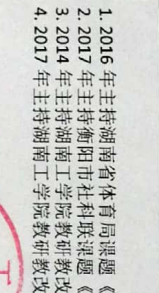 1. 2016 年主持湖南省体育局课题《
2. 2017 年主持衡阳市社科联课题《
3. 2014 年主持湖南工学院教研教改
4. 2017 年主持湖南工学院教研教改